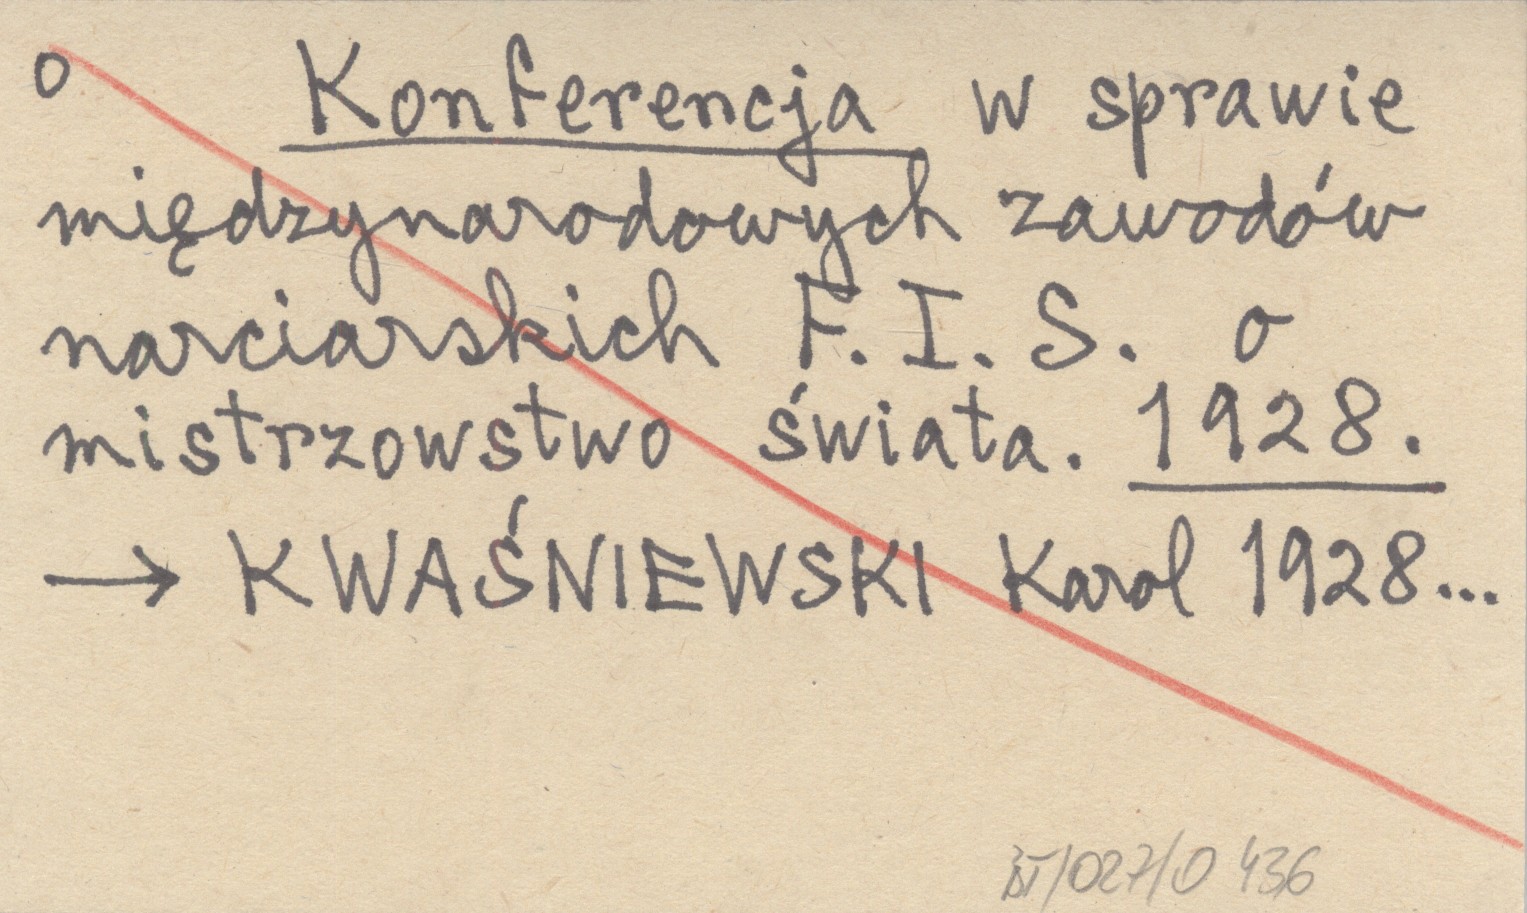 o Konferencja w sprawie
międzynarodowych zawodów
narciarskich F. I. S. o
mistrzowstwo świata. 1928.
→ KWAŚNIEWSKI Karol 1928...
/027/0 436